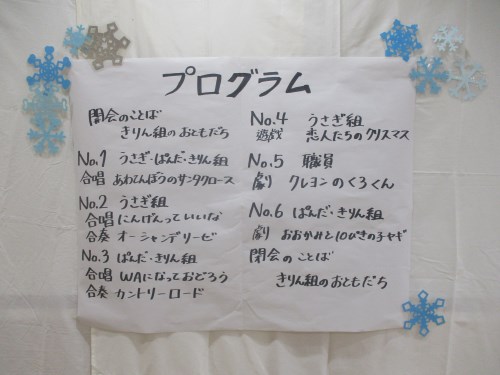 プログラム
開会のことば
きりん組のおともだち
No.1 うさぎ・ぱんだ・きりん組
合唱 あわてんぼうのサンタクロース
No.2 うさぎ組
合唱 にんげんっていいな
合奏 オーシャンゼリーゼ
No.3 ぱんだ・きりん組
合唱 WAになっておどろう
合奏 カントリーロード
No.4 うさぎ組
遊戯 恋人たちのクリスマス
No.5 職員
劇 クレヨンのくろくん
No.6 ぱんだ・きりん組
劇 おおかみと10ぴきの子ヤギ
閉会のことば
きりん組のおともだち